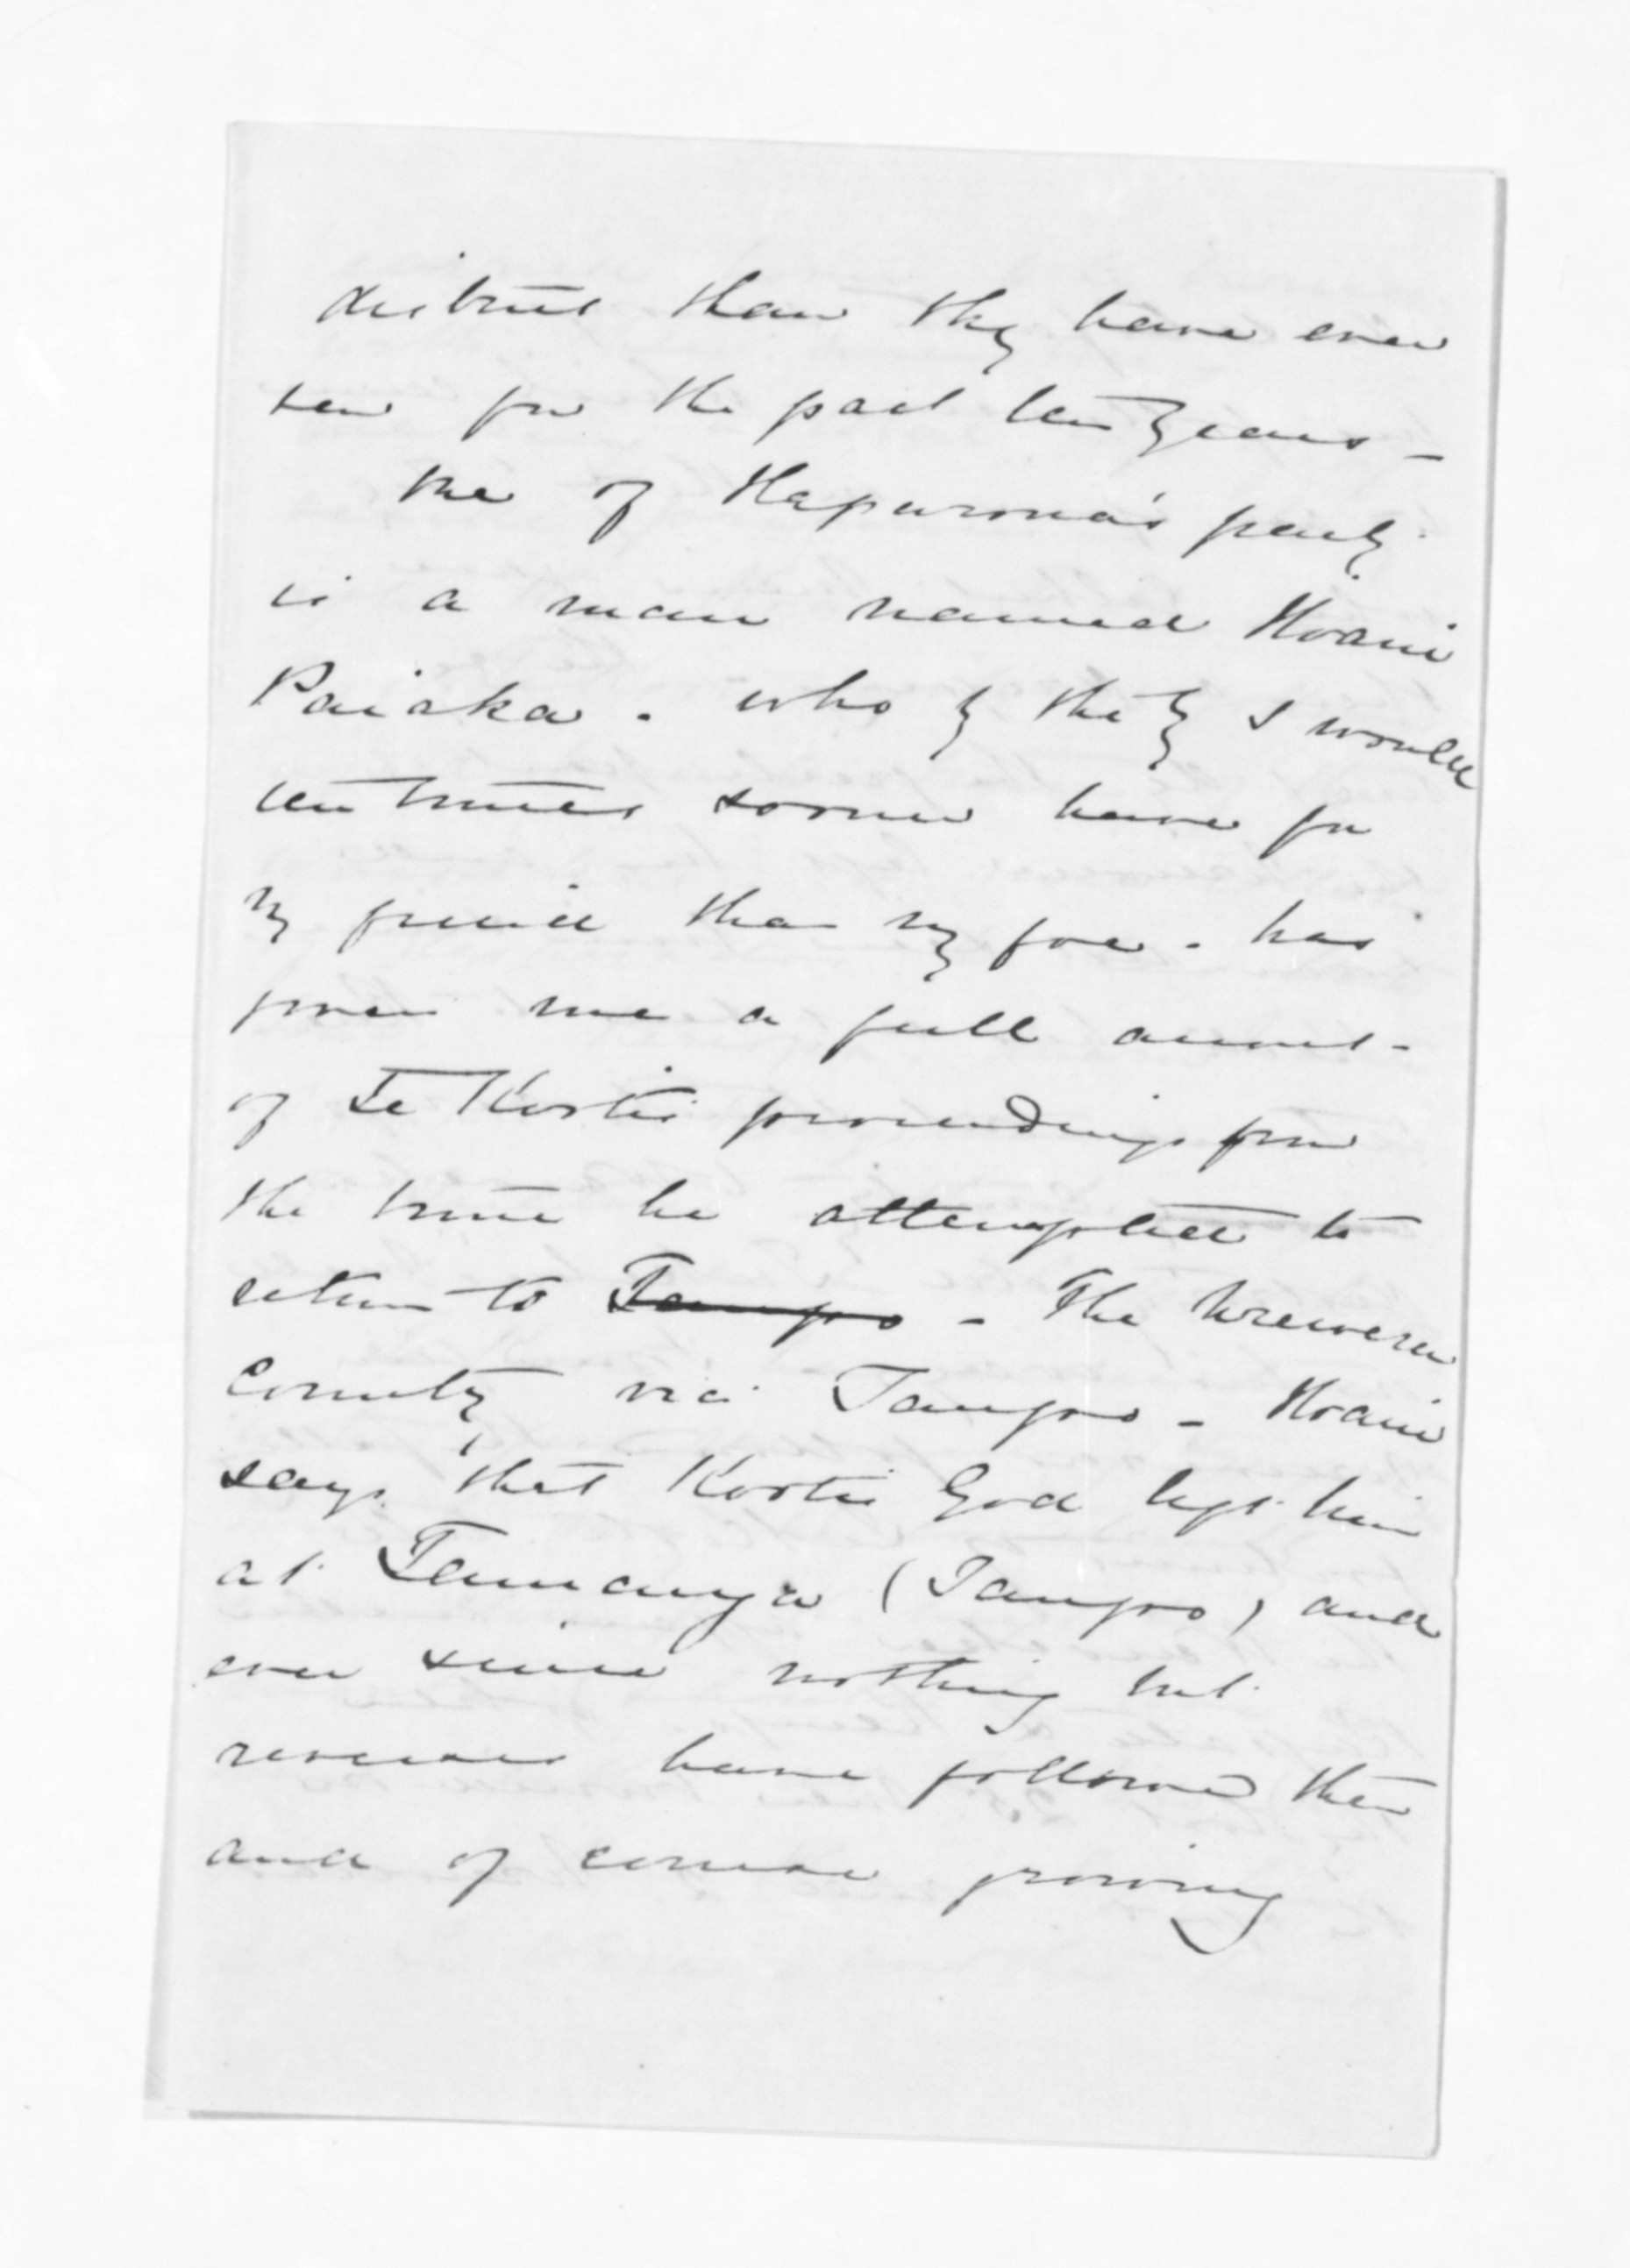 district than they have ever
been for the past ten years -
One of Hapurona's party
is a man named Hoani
Paiaka - who by the by I would
ten times sooner have for
my friend than my foe - has
given me a full account
of Te Kooti's proceedings from
the time he attempted to
return to Taupo - The Urewera
Country via Taupo - Hoani
says that Kooti's God left him
at Tauranga (Taupo) and
ever since nothing but
reverses have followed them
and of course growing